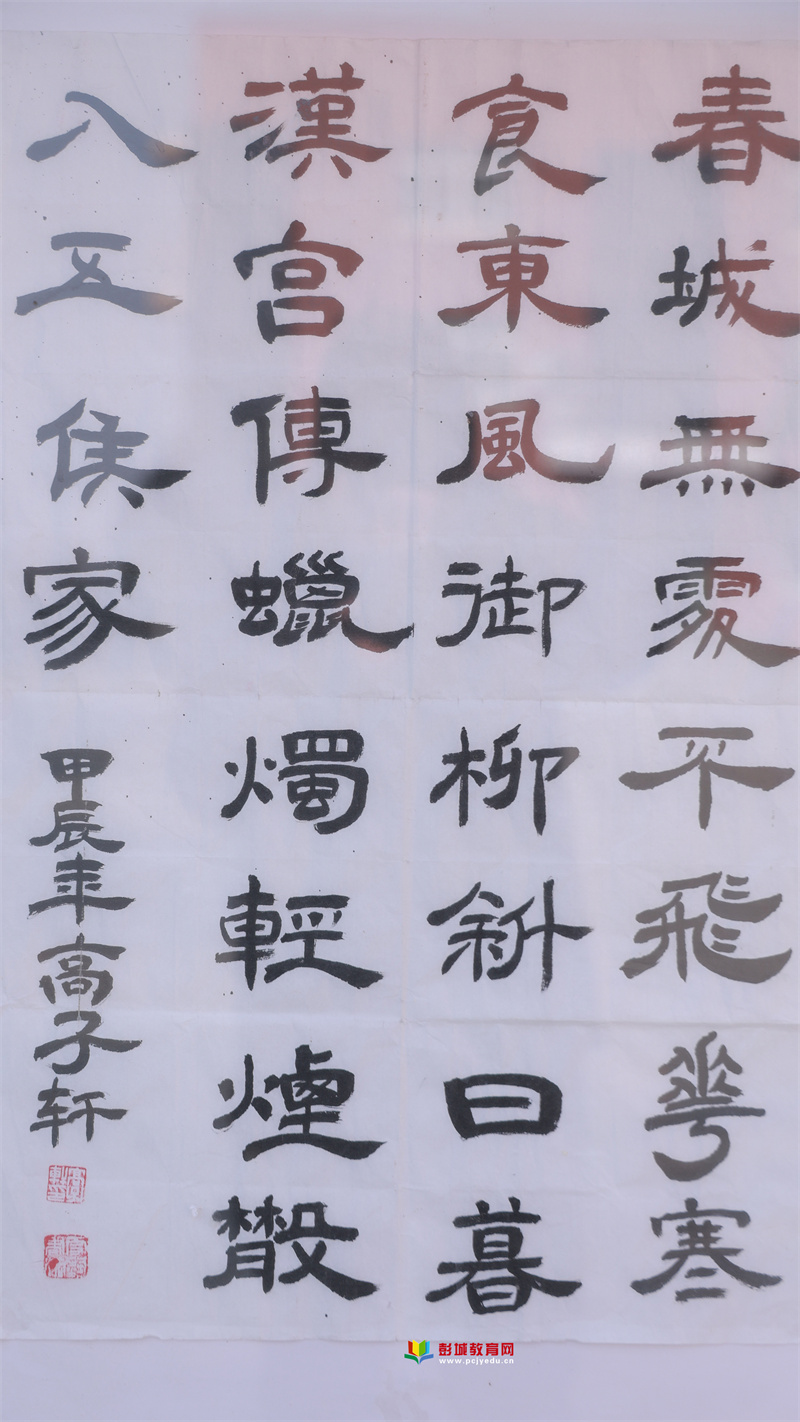 春城無處不飛華寒
食東風御柳斜日暮
漢宮傳蠟燭輕煙散
入五侯家
甲辰年高子轩
彭城教育网
www.pcjyedu.cn